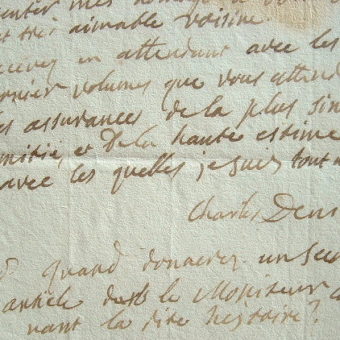 enter mes hommages
et très aimable voisine.
recevez en attendant avec les
dernier volumes que vous attend
les assurances de la plus sin
amitié, et de la haute estime
avec les quelles je suis tout
Charles Dens
Quand donnerez un sec
article dans le Moniteur
nant la dite histoire?